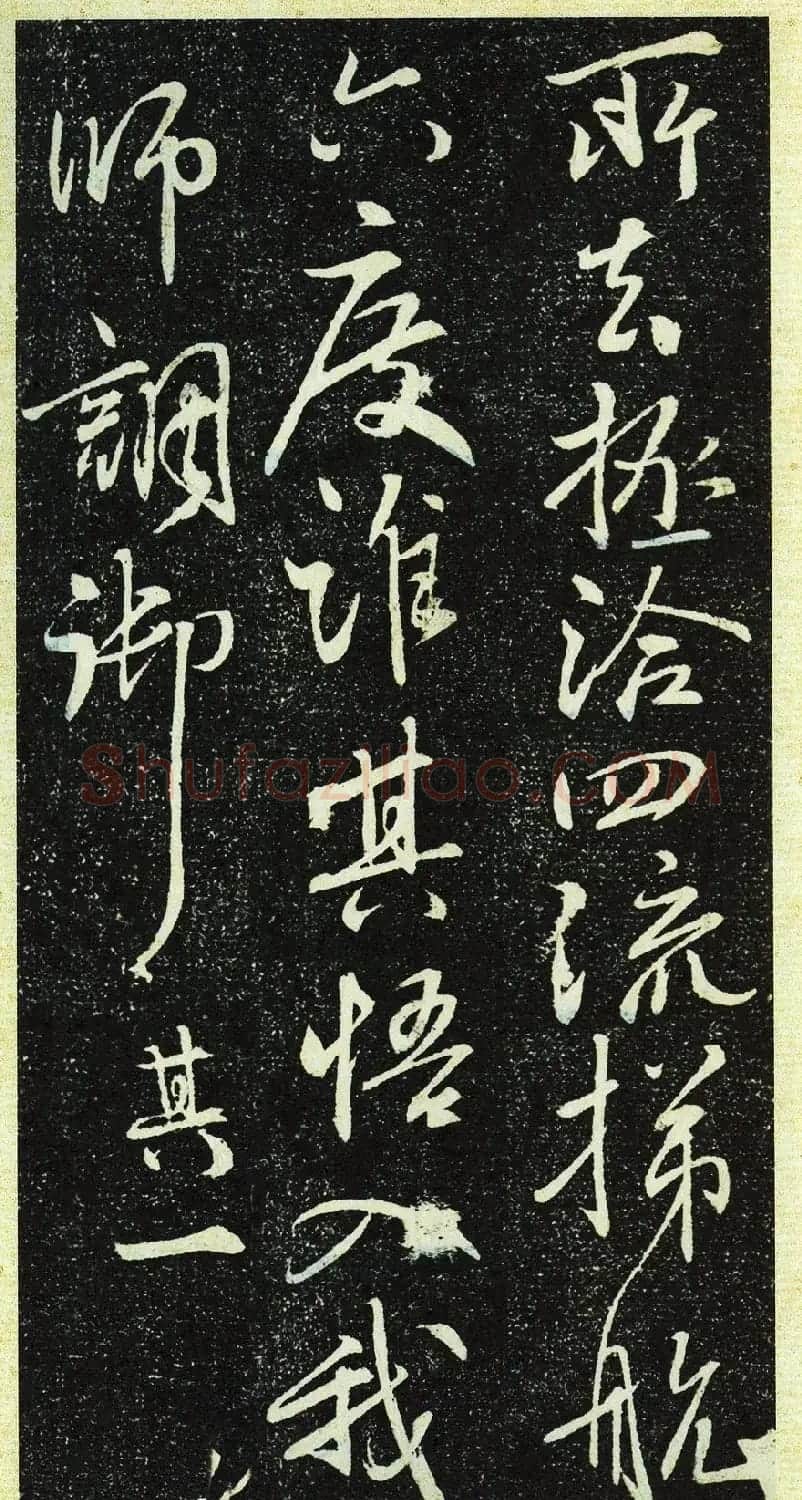 所去拯洽四流梯航
六度谁其悟入我
师調御
其一
Shufaziliao.COM